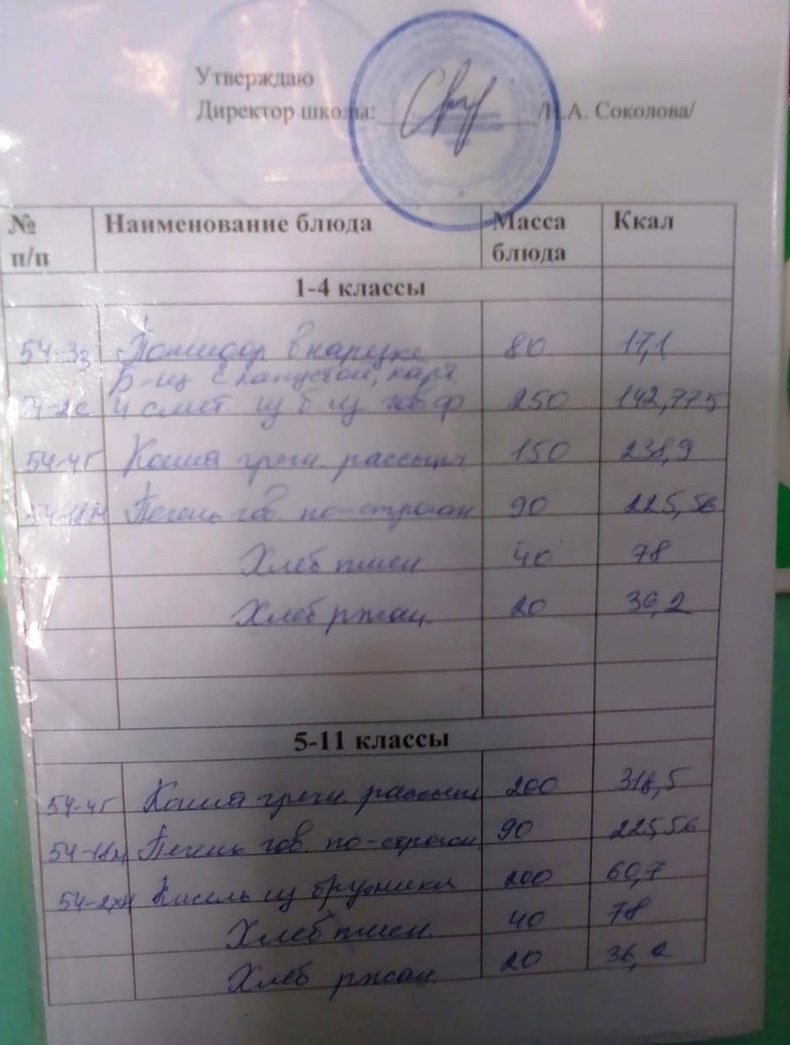 Утверждаю
Директор школы: /Н.А. Соколова/
№ п/п Наименование блюда Масса блюда Ккал
1-4 классы
54-3з Помидор в нарезке 80 17,1
Б-щ с капустой, карт.
и смет. 250 142,775
54-4г Каша гречн. рассыпч. 150 238,9
54-18м Печень гов. по-строган 90 225,56
Хлеб пшен 40 78
Хлеб ржан. 20 36,2
5-11 классы
54-4г Каша гречн. рассыпч 200 318,5
54-18м Печень гов. по-строган. 90 225,56
54-2хн Кисель из брусники 200 60,7
Хлеб пшен. 40 78
Хлеб ржан. 20 36,2